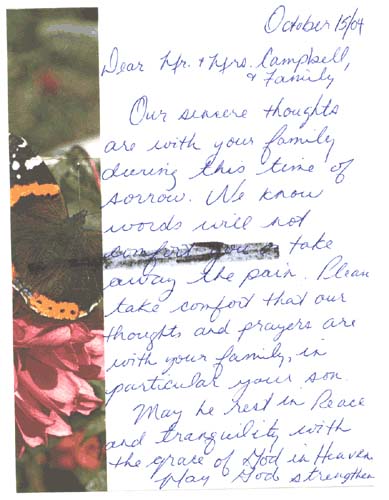 October 15/04
Dear Mr. & Mrs. Campbell,
& Family,
Our sincere thoughts
are with your family
during this time of
sorrow. We know
words will not
comfort you or take
away the pain. Please
take comfort that our
thoughts and prayers are
with your family, in
particular your son.
May he rest in Peace
and tranquility with
the grace of God in Heaven.
May God strengthen